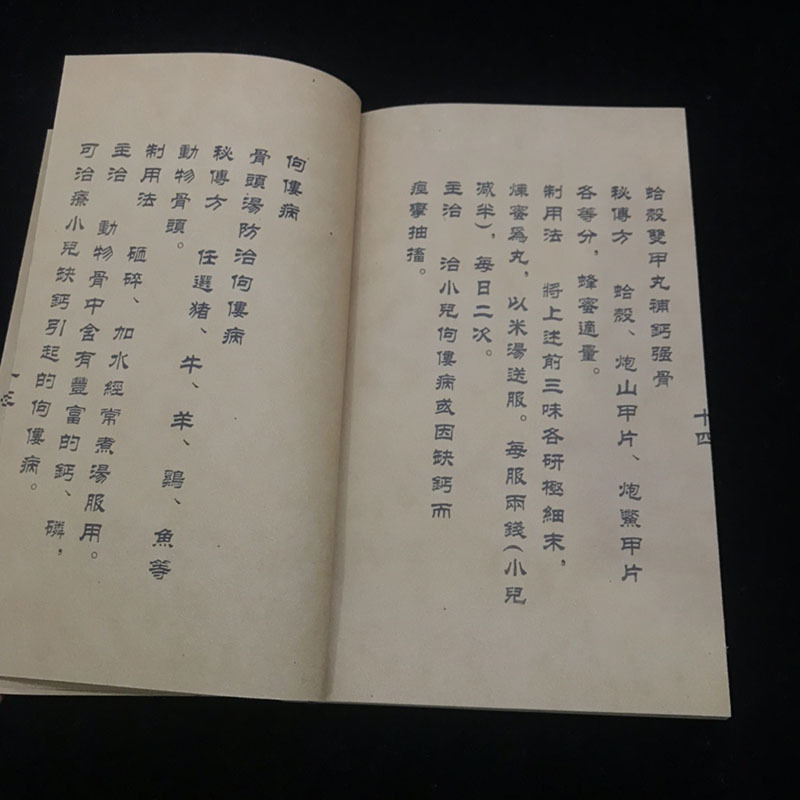 佝僂病
骨頭湯防治佝僂病
秘傳方 任選猪、牛、羊、鷄、魚等
動物骨頭。
制用法 砸碎、加水經常煮湯服用。
主治 動物骨中含有豐富的鈣、磷，
可治療小兒缺鈣引起的佝僂病。
十四
蛤殼雙甲丸補鈣强骨
秘傳方 蛤殼、炮山甲片、炮鱉甲片
各等分，蜂蜜適量。
制用法 將上述前三味各研極細末，
煉蜜爲丸，以米湯送服。每服兩錢（小兒
减半），每日二次。
主治 治小兒佝僂病或因缺鈣而
痙攣抽搐。